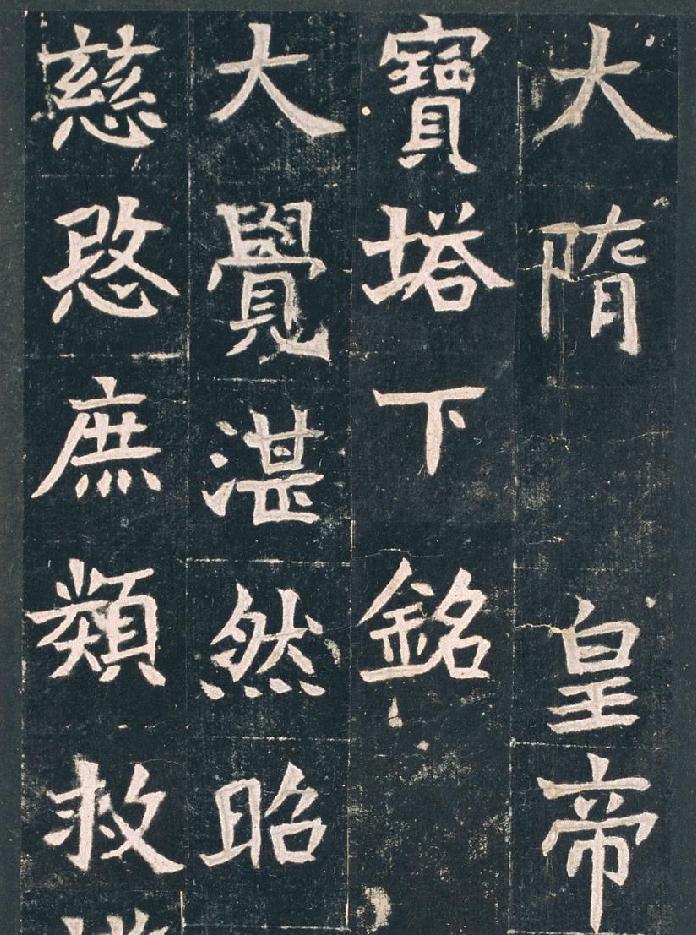 大隋皇帝
寶塔下銘
大覺湛然昭
慈愍庶類救